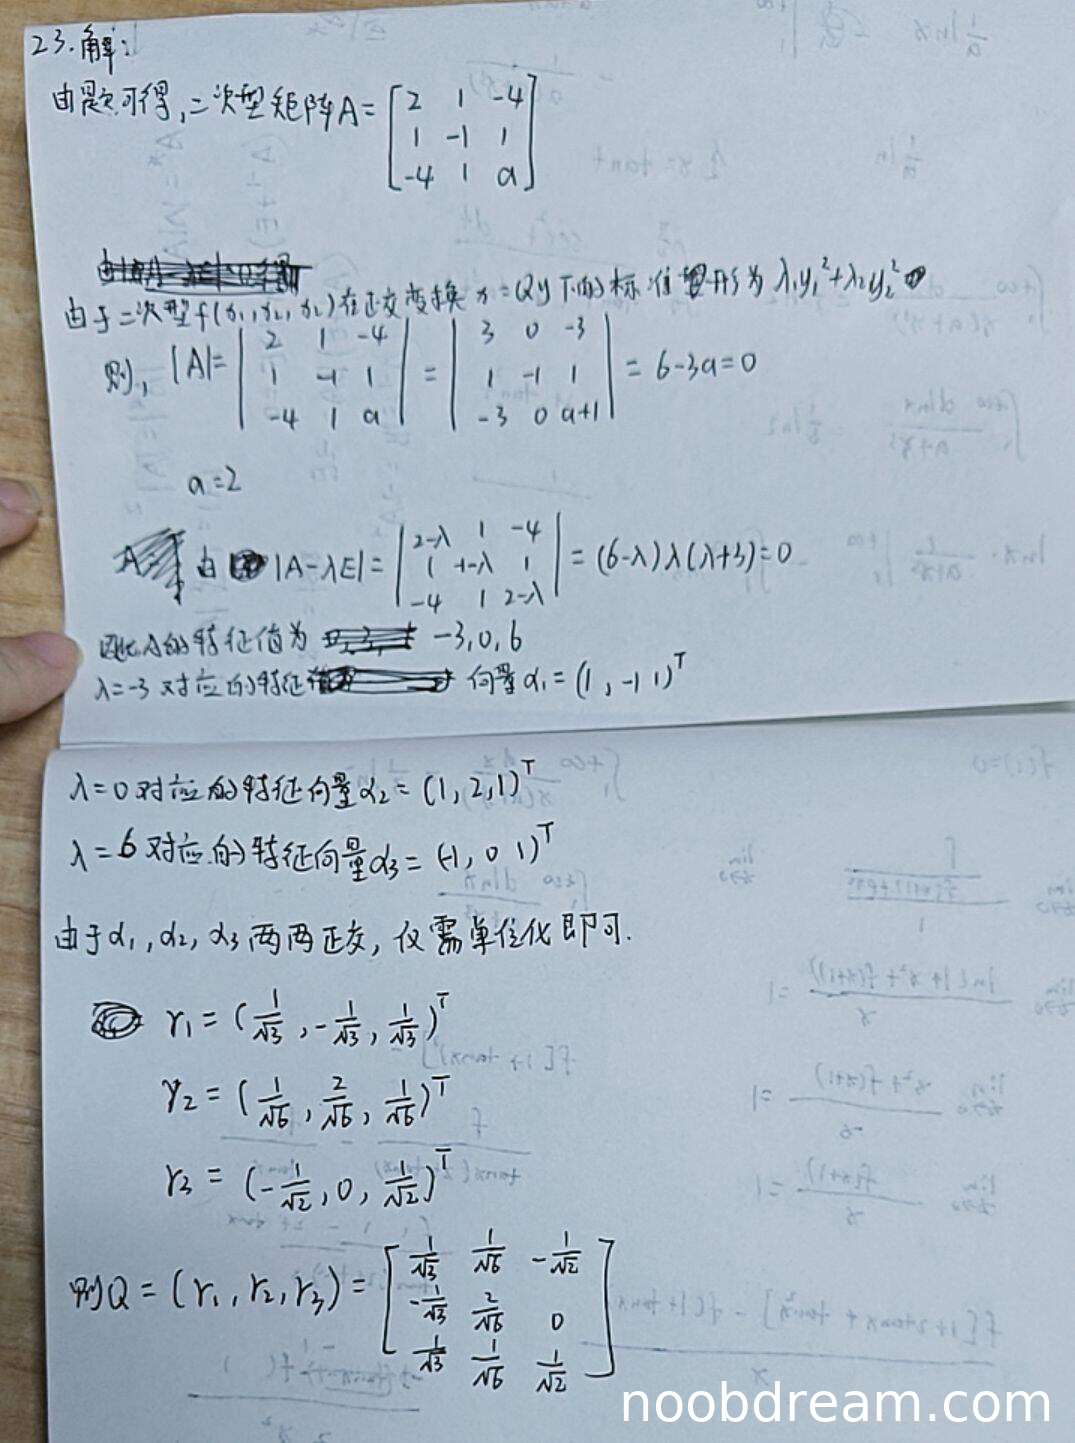 23.解:
由题可得,二次型矩阵A= [2 1 -4
1 -1 1
-4 1 a]
由于二次型f(x₁,x₂,x₃)在正交变换 x=Qy下的标准型形为 λ₁y₁²+λ₂y₂²
则, |A|= |2 1 -4
1 -1 1
-4 1 a| = |3 0 -3
1 -1 1
-3 0 a+1| = 6-3a=0
a=2
由 |A-λE|= |2-λ 1 -4
1 -1-λ 1
-4 1 2-λ| = (6-λ)λ(λ+3)=0
因此A的特征值为 -3,0,6
λ=-3 对应的特征 向量α₁=(1,-1 1)ᵀ
λ=0 对应的特征向量α₂=(1,2,1)ᵀ
λ=6 对应的特征向量α₃=(-1,0 1)ᵀ
由于α₁,α₂,α₃两两正交,仅需单位化即可.
r₁=(1/√3,-1/√3,1/√3)ᵀ
r₂=(1/√6,2/√6,1/√6)ᵀ
r₃=(-1/√2,0,1/√2)ᵀ
则Q=(r₁,r₂,r₃)= [1/√3 1/√6 -1/√2
-1/√3 2/√6 0
1/√3 1/√6 1/√2]
noobdream.com